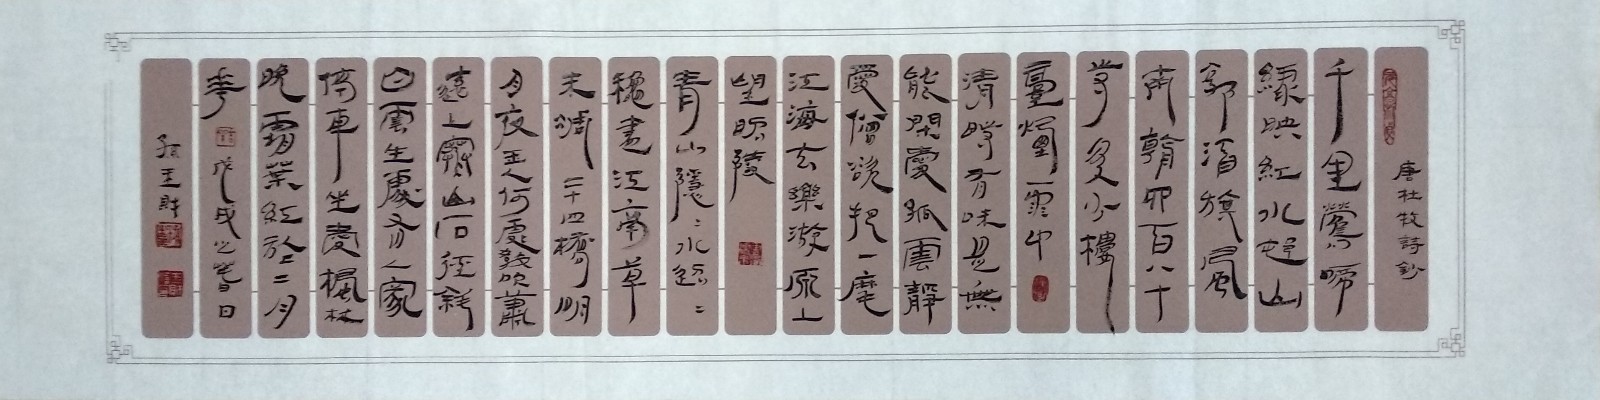 唐杜牧詩鈔
千里鶯啼
綠映紅水邨山
郭酒旗風
南朝四百八十
寺多少樓
臺煙雨中
清時有味是無
能閑愛孤雲靜
愛僧欲把一麾
江海去樂遊原上
望昭陵
青山隱〻水迢〻
穐盡江南草
未凋二十四橋明
月夜玉人何處教吹簫
遠上寒山石徑斜
白雲生處有人家
停車坐愛楓林
晚霜葉紅於二月
華 戊戌之春日
孫玉財